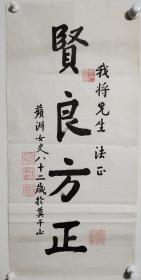 我将先生 法正
賢良方正
蘋洲女史八十二歲於莫干山